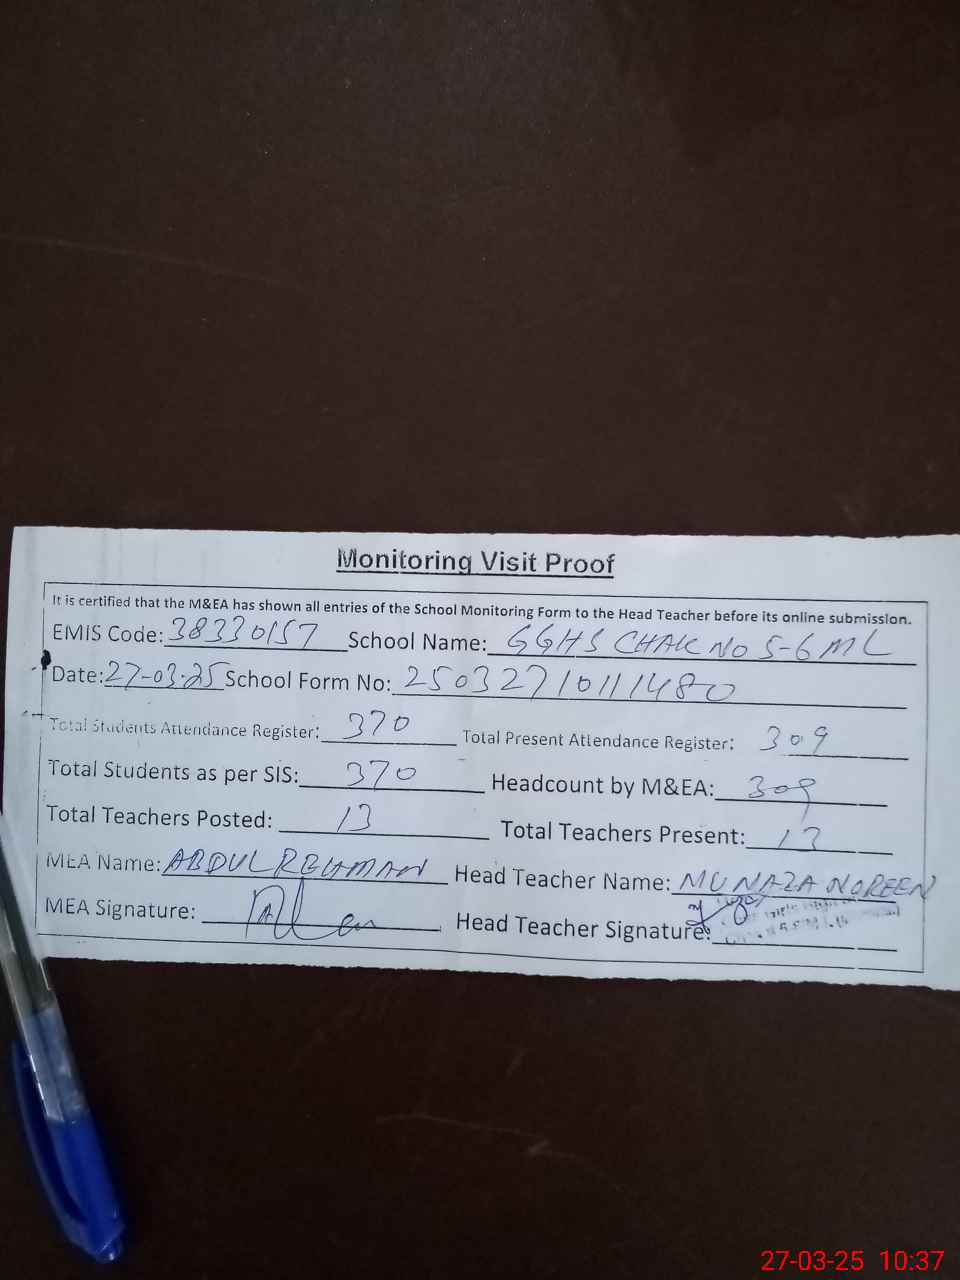 Monitoring Visit Proof
It is certified that the M&EA has shown all entries of the School Monitoring Form to the Head Teacher before its online submission.
EMIS Code: 38330157 School Name: GGHS CHAK NO 5-6 ML
Date: 27-03-25 School Form No: 25032710111480
Total Students Attendance Register: 370 Total Present Attendance Register: 309
Total Students as per SIS: 370 Headcount by M&EA: 309
Total Teachers Posted: 13 Total Teachers Present: 13
MEA Name: ABDUL REHMAN Head Teacher Name: MUNAZA NOREEN
MEA Signature: Head Teacher Signature:
27-03-25 10:37